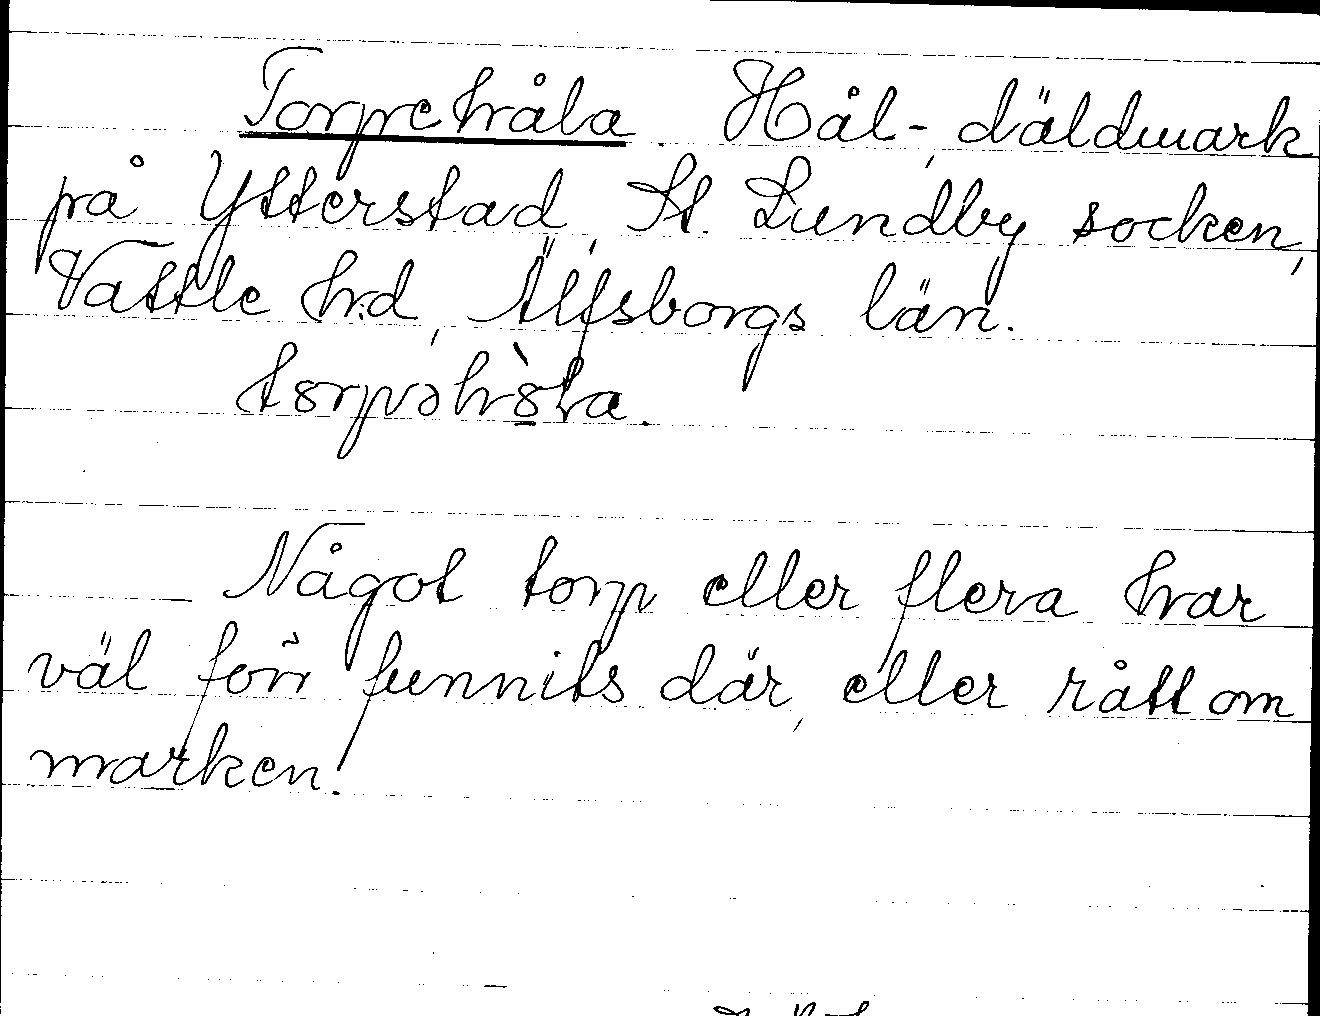 Torpehåla. Hål-, däldmark
på Ytterstad, St. Lundby socken,
Vättle hd, Älfsborgs län.
Något torp eller flera har
väl förr funnits där, eller rått om
marken!